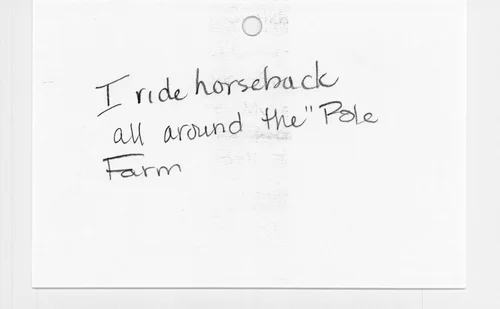 I ride horseback
all around the "Pole
Farm